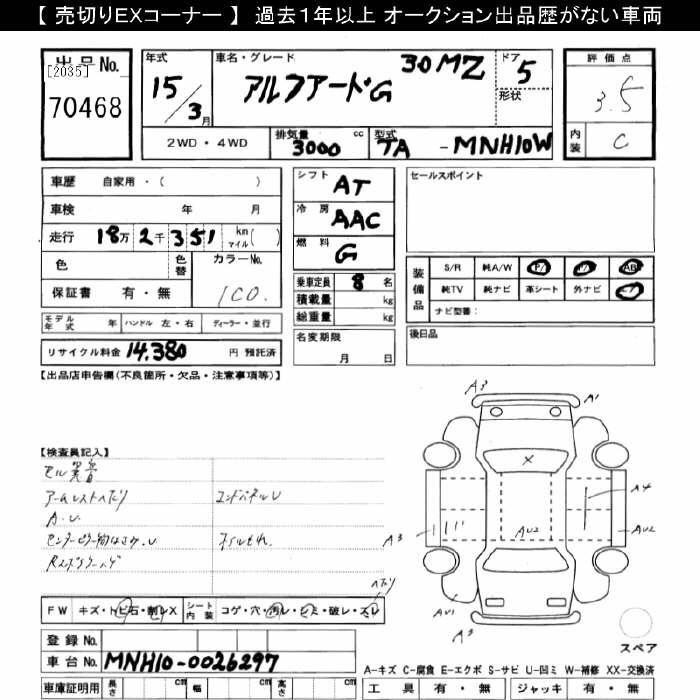 【 売切りEXコーナー 】 過去１年以上 オークション出品歴がない車両
出品No.
[2035]
70468
年式
15/3月
車名・グレード
アルファードG 30MZ
ドア
5
形状
評価点
3.5
内装
C
2WD・4WD
排気量
3000 cc
型式
TA - MNH10W
車歴 自家用・( )
車検 年 月
走行 18万 2千 351 km マイル( )
色
色替
カラーNo.
1C0.
保証書 有・無
モデル年式 年 ハンドル 左・右 ディーラー・並行
リサイクル料金 14,380 円 預託済
シフト AT
冷房 AAC
燃料 G
乗車定員 8 名
積載量 kg
総重量 kg
名変期限
月 日
セールスポイント
装備品
S/R 純A/W P/ P/ AB
純TV 純ナビ 革シート 外ナビ エア
ナビ型番:
後日品
【出品店申告欄(不良箇所・欠品・注意事項等)】
【検査員記入】
セル異音
アームレストヘタリ
A.U
コンドパネルU
オイルもれ.
FW キズ・トビ石・割レX
シート内装 コゲ・穴・汚レ・シミ・破レ・スレ
ヘタリ
登録No.
車台No. MNH10-0026297
車庫証明用 長さ cm 幅 cm 高さ cm
A3
A1
X
A4
AU2
AU2
A3
AU1
A3
スペア
A-キズ C-腐食 E-エクボ S-サビ U-凹ミ W-補修 XX-交換済
工具 有・無 ジャッキ 有・無